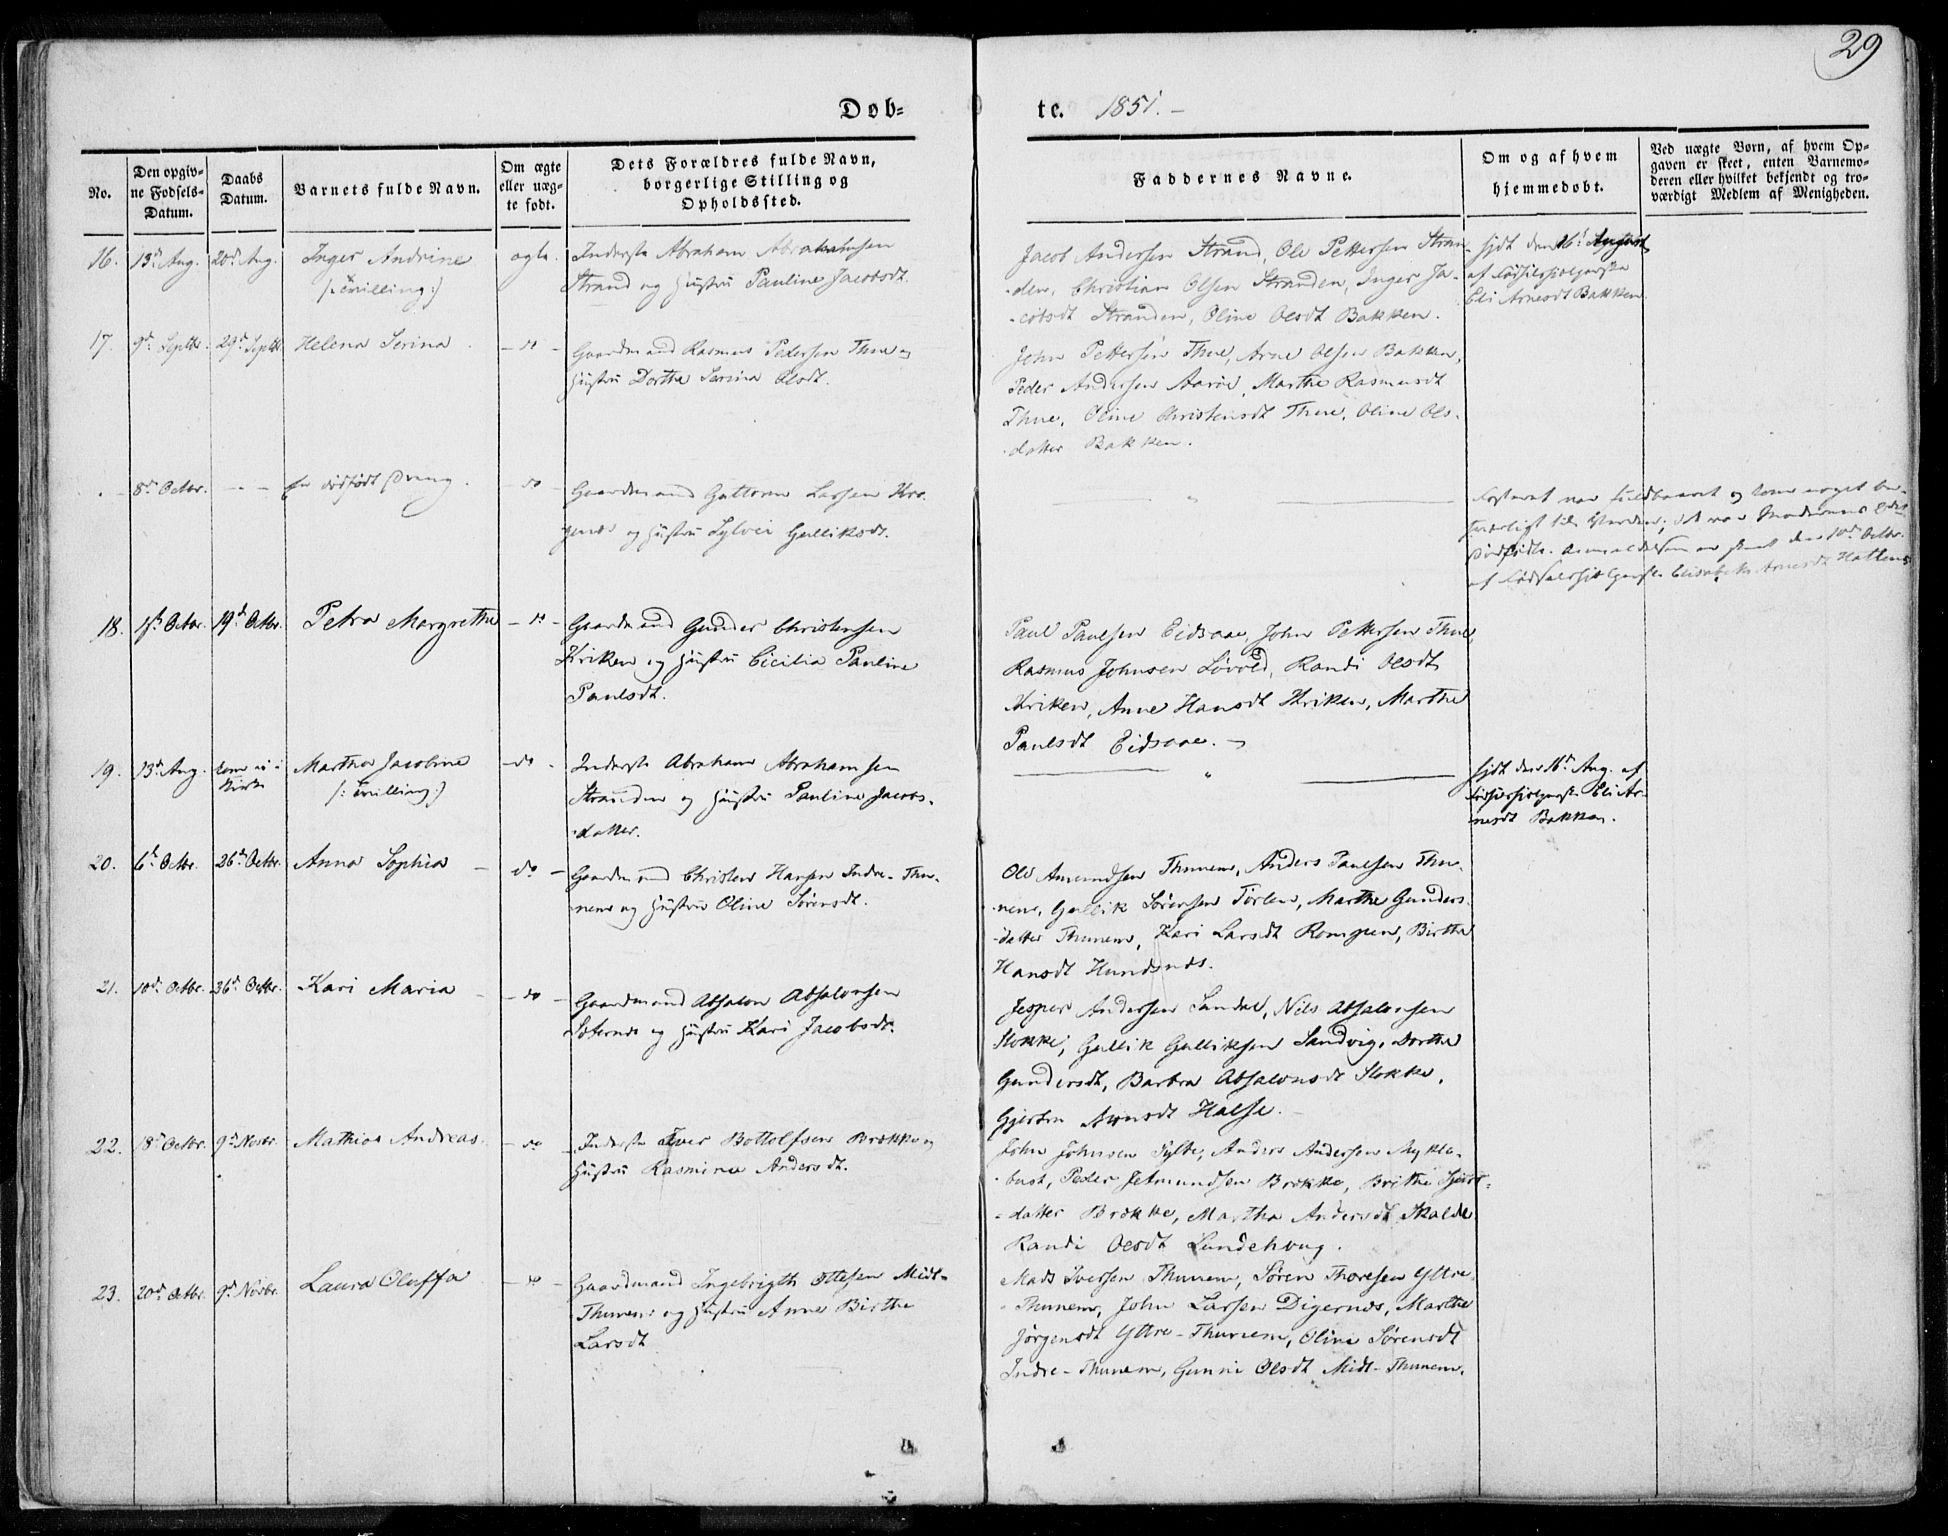 29
Døb=
te. 1851. -
No.
Den opgiv-
ne Fødsels-
Datum.
Daabs
Datum.
Barnets fulde Navn.
Om ægte
eller uæg-
te født.
Dets Forældres fulde Navn,
borgerlige Stilling og
Opholdssted.
Faddernes Navne.
Om og af hvem
hjemmedøbt.
Ved uægte Børn, af hvem Op-
gaven er skeet, enten Barnemo-
deren eller hvilket bekjendt og tro-
værdigt Medlem af Menigheden.
16. 13d Aug. 20d Aug. Inger Andrine
(: Tvilling :)
ægte.
Inderste Abraham Abrahamsen
Strand og Hustru Pauline Jacobsdt.
Jacob Andersen Strand, Ole Pettersen Stran-
den, Christian Olsen Stranden, Inger Ja-
-cobsdt Stranden, Oline Olsdt Bakken.
hjdt den 16d August
af
Eli Arnesdt Bakken
17. 9d Septbr. 29d Septbr Helena Serina - do -
Gaardmand Rasmus Pedersen Thue og
Hustru Dorthe Serina Olsdt.
John Pettersen Thue, Arne Olsen Bakken,
Peder Andersen Aarøe, Marthe Rasmusdt
Thue, Oline Christensdt Thue, Oline Ols-
-datter Bakken.
- 8d Octbr. - - en dødfødt Dreng. - do -
Gaardmand Guttorm Larsen
og Hustru Sylvei Gulliksdt.
- " -
Fosteret var fuldbaaret og kom noget
til Verden; det var Moderens
Anmeldelsen er skeet den 10d Octbr.
af Elisabeth Arnesdt
18. Octbr. 19d Octbr. Petra Margrethe - do -
Gaardmand Gunder Christensen
Kriken og Hustru Cicilia Pauline
Paulsdt.
Paul Paulsen Eidsaae, John Pettersen Thue,
Rasmus Johnsen Løvold, Randi Olsdt
Kriken, Anne Hansdt Kriken, Marthe
Paulsdt Eidsaae. -
19. 13d Aug. kom ei i
Kirke
Martha Jacobine
(: Tvilling :)
- do -
Inderste Abraham Abrahamsen
Stranden og Hustru Pauline Jacobs-
-datter.
- " -
hjdt den 16d Aug. af
Eli Ar-
nesdt Bakken.
20. 6d Octbr. 26d Octbr. Anna Sophia - - do -
Gaardmand Christen Hansen Indre-Thu-
-nem og Hustru Oline Sørensdt.
Ole Amundsen Thunem, Anders Paulsen Thu-
-nem, Gullik Sørensen Tørlen, Marthe Gunders-
-datter Thunem, Kari Larsdt Rongven, Birthe
Hansdt Hundsnæs.
21. 10d Octbr. 26d Octbr. Kari Maria - - do -
Gaardmand Absalon Absalonsen
og Hustru Kari Jacobsdt.
Jesper Andersen Sandal, Nils Absalonsen
Slokke, Gullik Gulliksen Sandvig, Dorthe
Gundersdt, Barbra Absalonsdt Slokke,
Gjertru Arnesdt Halse. -
22. 18d Octbr. 9d Novbr. Mathias Andreas. - do
Inderste Iver Bottolfsen Brække og
Hustru Rasmine Andersdt.
John Johnsen Sylte, Anders Andersen Mykle-
-bust, Peder Jetmundsen Brække, Brithe
-datter Brække, Martha Andersdt Skalde
Randi Olsdt Lundehoug.
23. 20d Octbr. 9d Novbr. Laura Oluffa - do -
Gaardmand Ingebrigth Ottesen Midt-
Thunem og Hustru Anne Birthe
Larsdt
Mads Iversen Thunem, Søren Thoresen Yttre-
-Thunem, John Larsen Digernæs, Marthe
Jørgensdt Yttre-Thunem, Oline Sørensdt
Indre-Thunem, Gunni Olsdt Midt-Thunem.